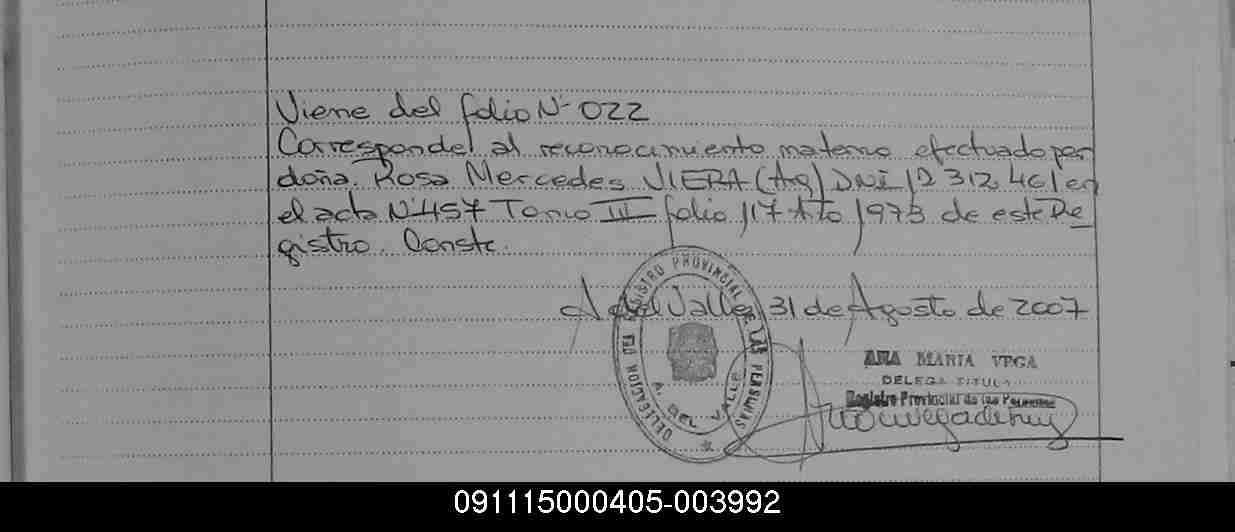 Viene del folio Nº 022
Corresponde al reconocimiento materno efectuado por
doña. Rosa Mercedes VIERA (Arg) DNI 12 312 461 en
el acta Nº 457 Tomo III folio 117 Año 1973 de este Re
gistro. Conste.
A del Valle, 31 de Agosto de 2007
DELEGACION DEL REGISTRO PROVINCIAL DE LAS PERSONAS
A. DEL VALLE
ANA MARIA VEGA
DELEGA TITULA
Registro Provincial de las Personas
091115000405-003992